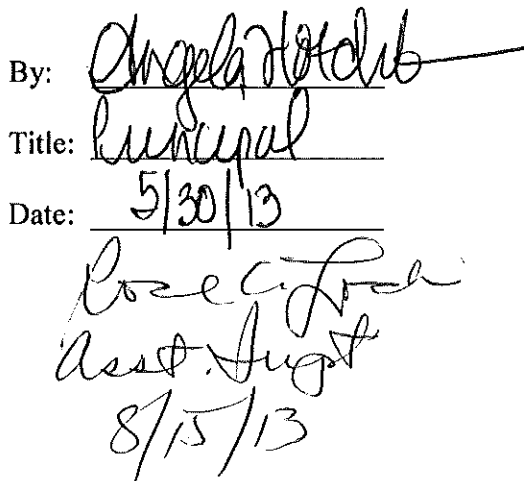 By: Angela
Title: Principal
Date: 5/30/13
Rose
Asst. Supt
8/15/13